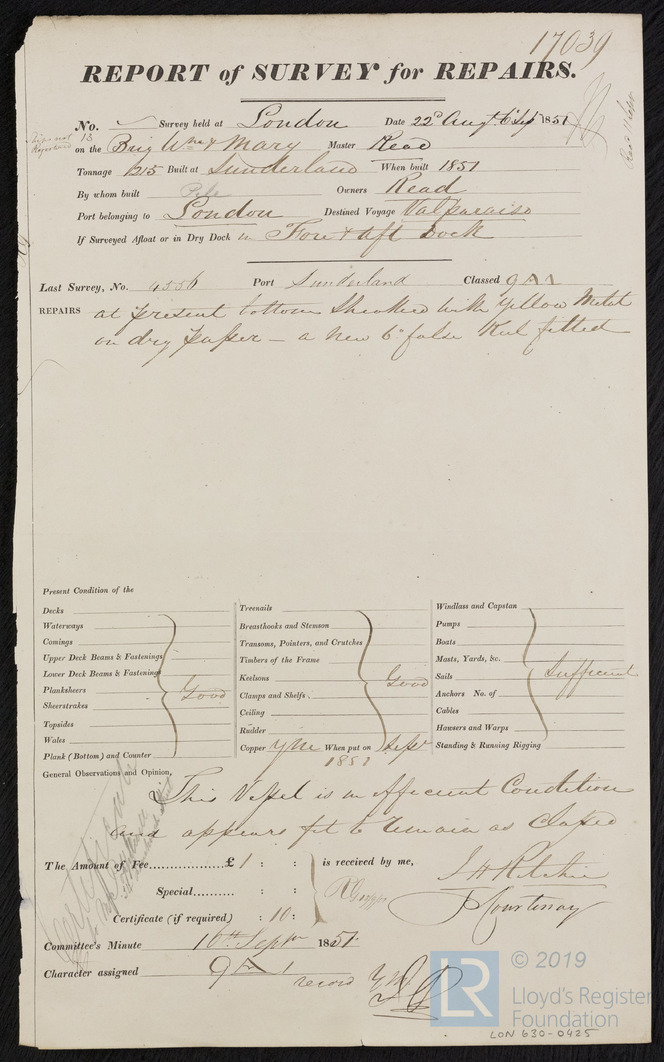 17039
REPORT of SURVEY for REPAIRS.
No. 13 Survey held at London Date 22d Augt 6 Sep 1851
on the Brig Wm & Mary Master Read
Tonnage 1215 Built at Sunderland When built 1851
By whom built Pile Owners Read
Port belonging to London Destined Voyage Valparaiso
If Surveyed Afloat or in Dry Dock in Fore & aft Dock
Last Survey, No. 4556 Port Sunderland Classed 9AA1
REPAIRS at present bottom Sheathed with Yellow Metal
on dry paper – a new 6" false Keel fitted
Present Condition of the
Decks
Waterways
Comings
Upper Deck Beams & Fastenings
Lower Deck Beams & Fastenings
Planksheers Good
Sheerstrakes
Topsides
Wales
Plank (Bottom) and Counter
Treenails
Breasthooks and Stemson
Transoms, Pointers, and Crutches
Timbers of the Frame
Keelsons Good
Clamps and Shelfs
Ceiling
Rudder
Copper YM When put on Sepr
1851
Windlass and Capstan
Pumps
Boats
Masts, Yards, &c.
Sails Sufficient
Anchors No. of
Cables
Hawsers and Warps
Standing & Running Rigging
General Observations and Opinion,
This Vessel is in efficient Condition
and appears fit to remain as Classed
The Amount of Fee £ 1 : : is received by me,
Special : :
Certificate (if required) : 10 :
J H Ritchie
J Courtenay
Committee's Minute 16th Septr 1851
Character assigned 9 A 1
record YM
LR
© 2019
Lloyd's Register
Foundation
LON 630-0425